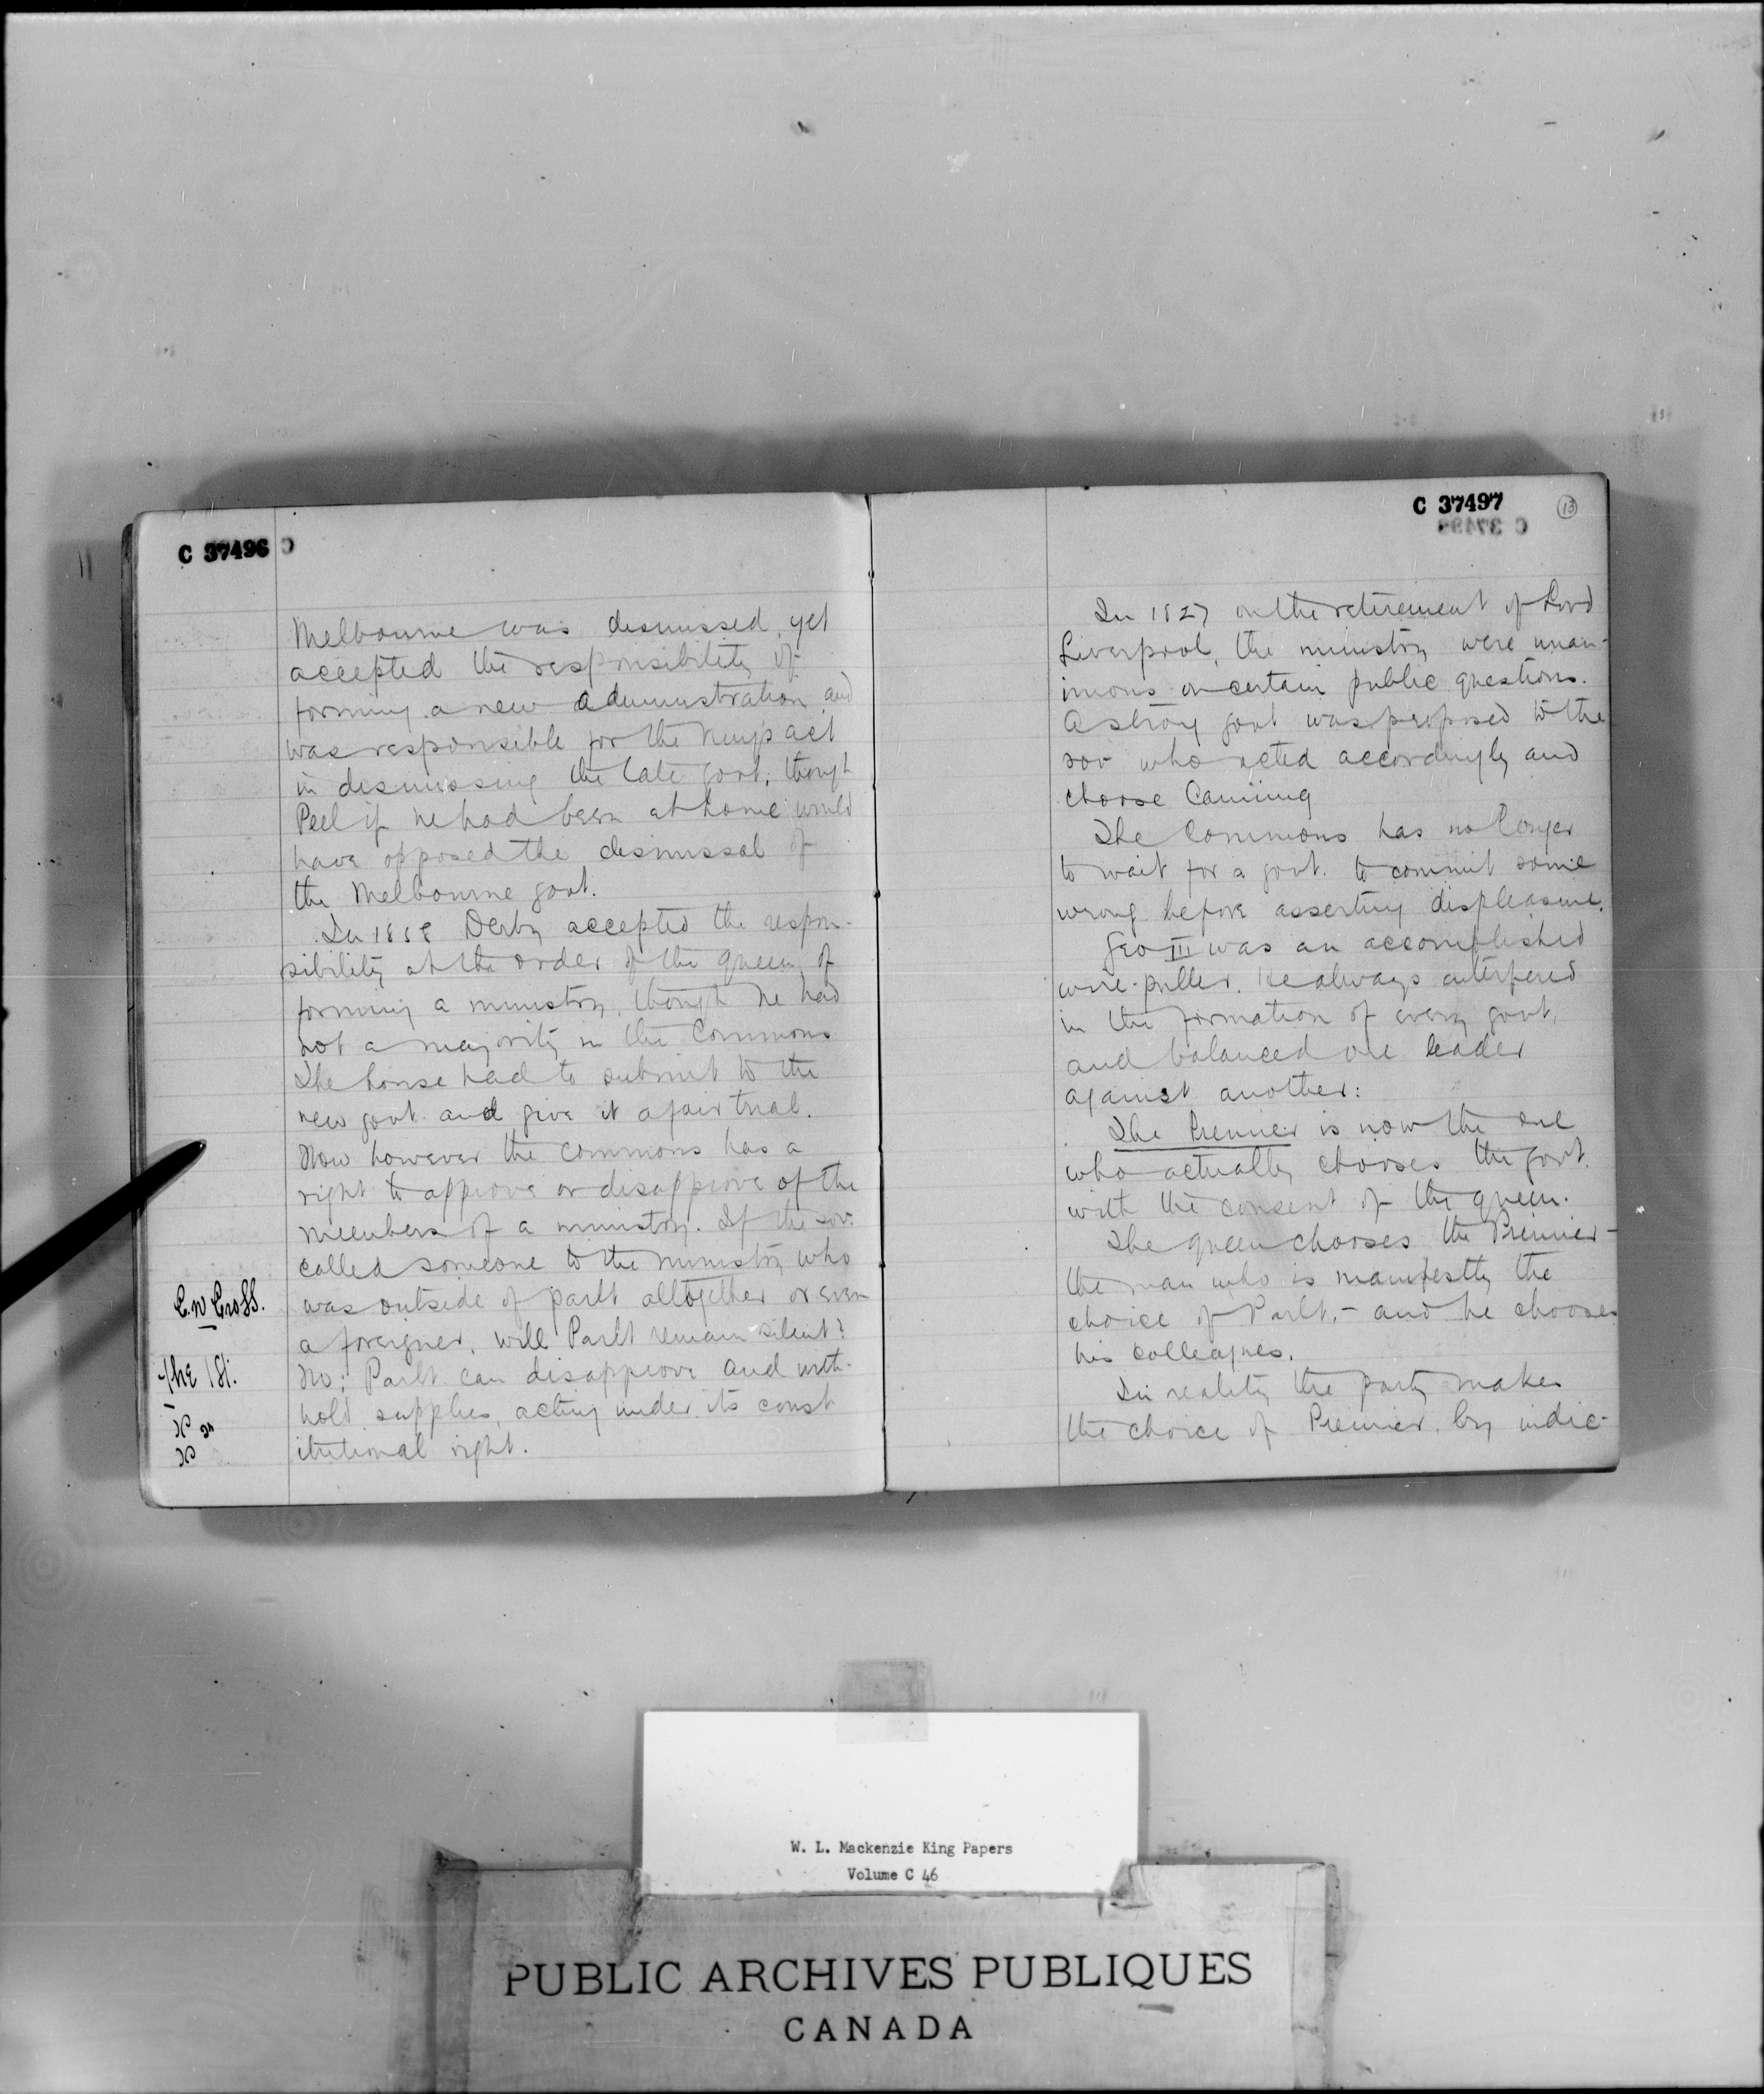 C 37496
Melbourne was dismissed, yet
accepted the responsibility of
forming a new administration and
was responsible for the King's act
in dismissing the late govt; though
Peel if he had been at home would
have opposed the dismissal of
the Melbourne govt.
In 1858 Derby accepted the respon-
sibility at the order of the queen, of
forming a ministry, though he had
not a majority in the Commons
The house had to submit to the
new govt and give it a fair trial.
Now however the commons has a
right to approve or disapprove of the
members of a ministry. If the sov.
called someone to the ministry who
was outside of parlt altogether or even
a foreigner, will Parlt remain silent?
No; Parlt. can disapprove and with-
hold supplies, acting under its const
itutional right.
C 37497
13
In 1827 on the retirement of Lord
Liverpool, the ministry were unan-
imous on certain public questions.
A strong govt was proposed to the
sov who acted accordingly and
choose Canning
The Commons has no longer
to wait for a govt. to commit some
wrong before asserting displeasure.
Geo III was an accomplished
wire-puller. He always interfered
in the formation of every govt,
and balanced one leader
against another:
The Premier is now the one
who actually chooses the govt.
with the consent of the queen.
The queen chooses the Premier-
the man who is manifestly the
choice of Parlt.- and he chooses
his colleagues.
In reality the party makes
the choice of Premier by indic-
W. L. Mackenzie King Papers
Volume C 46
PUBLIC ARCHIVES PUBLIQUES
CANADA